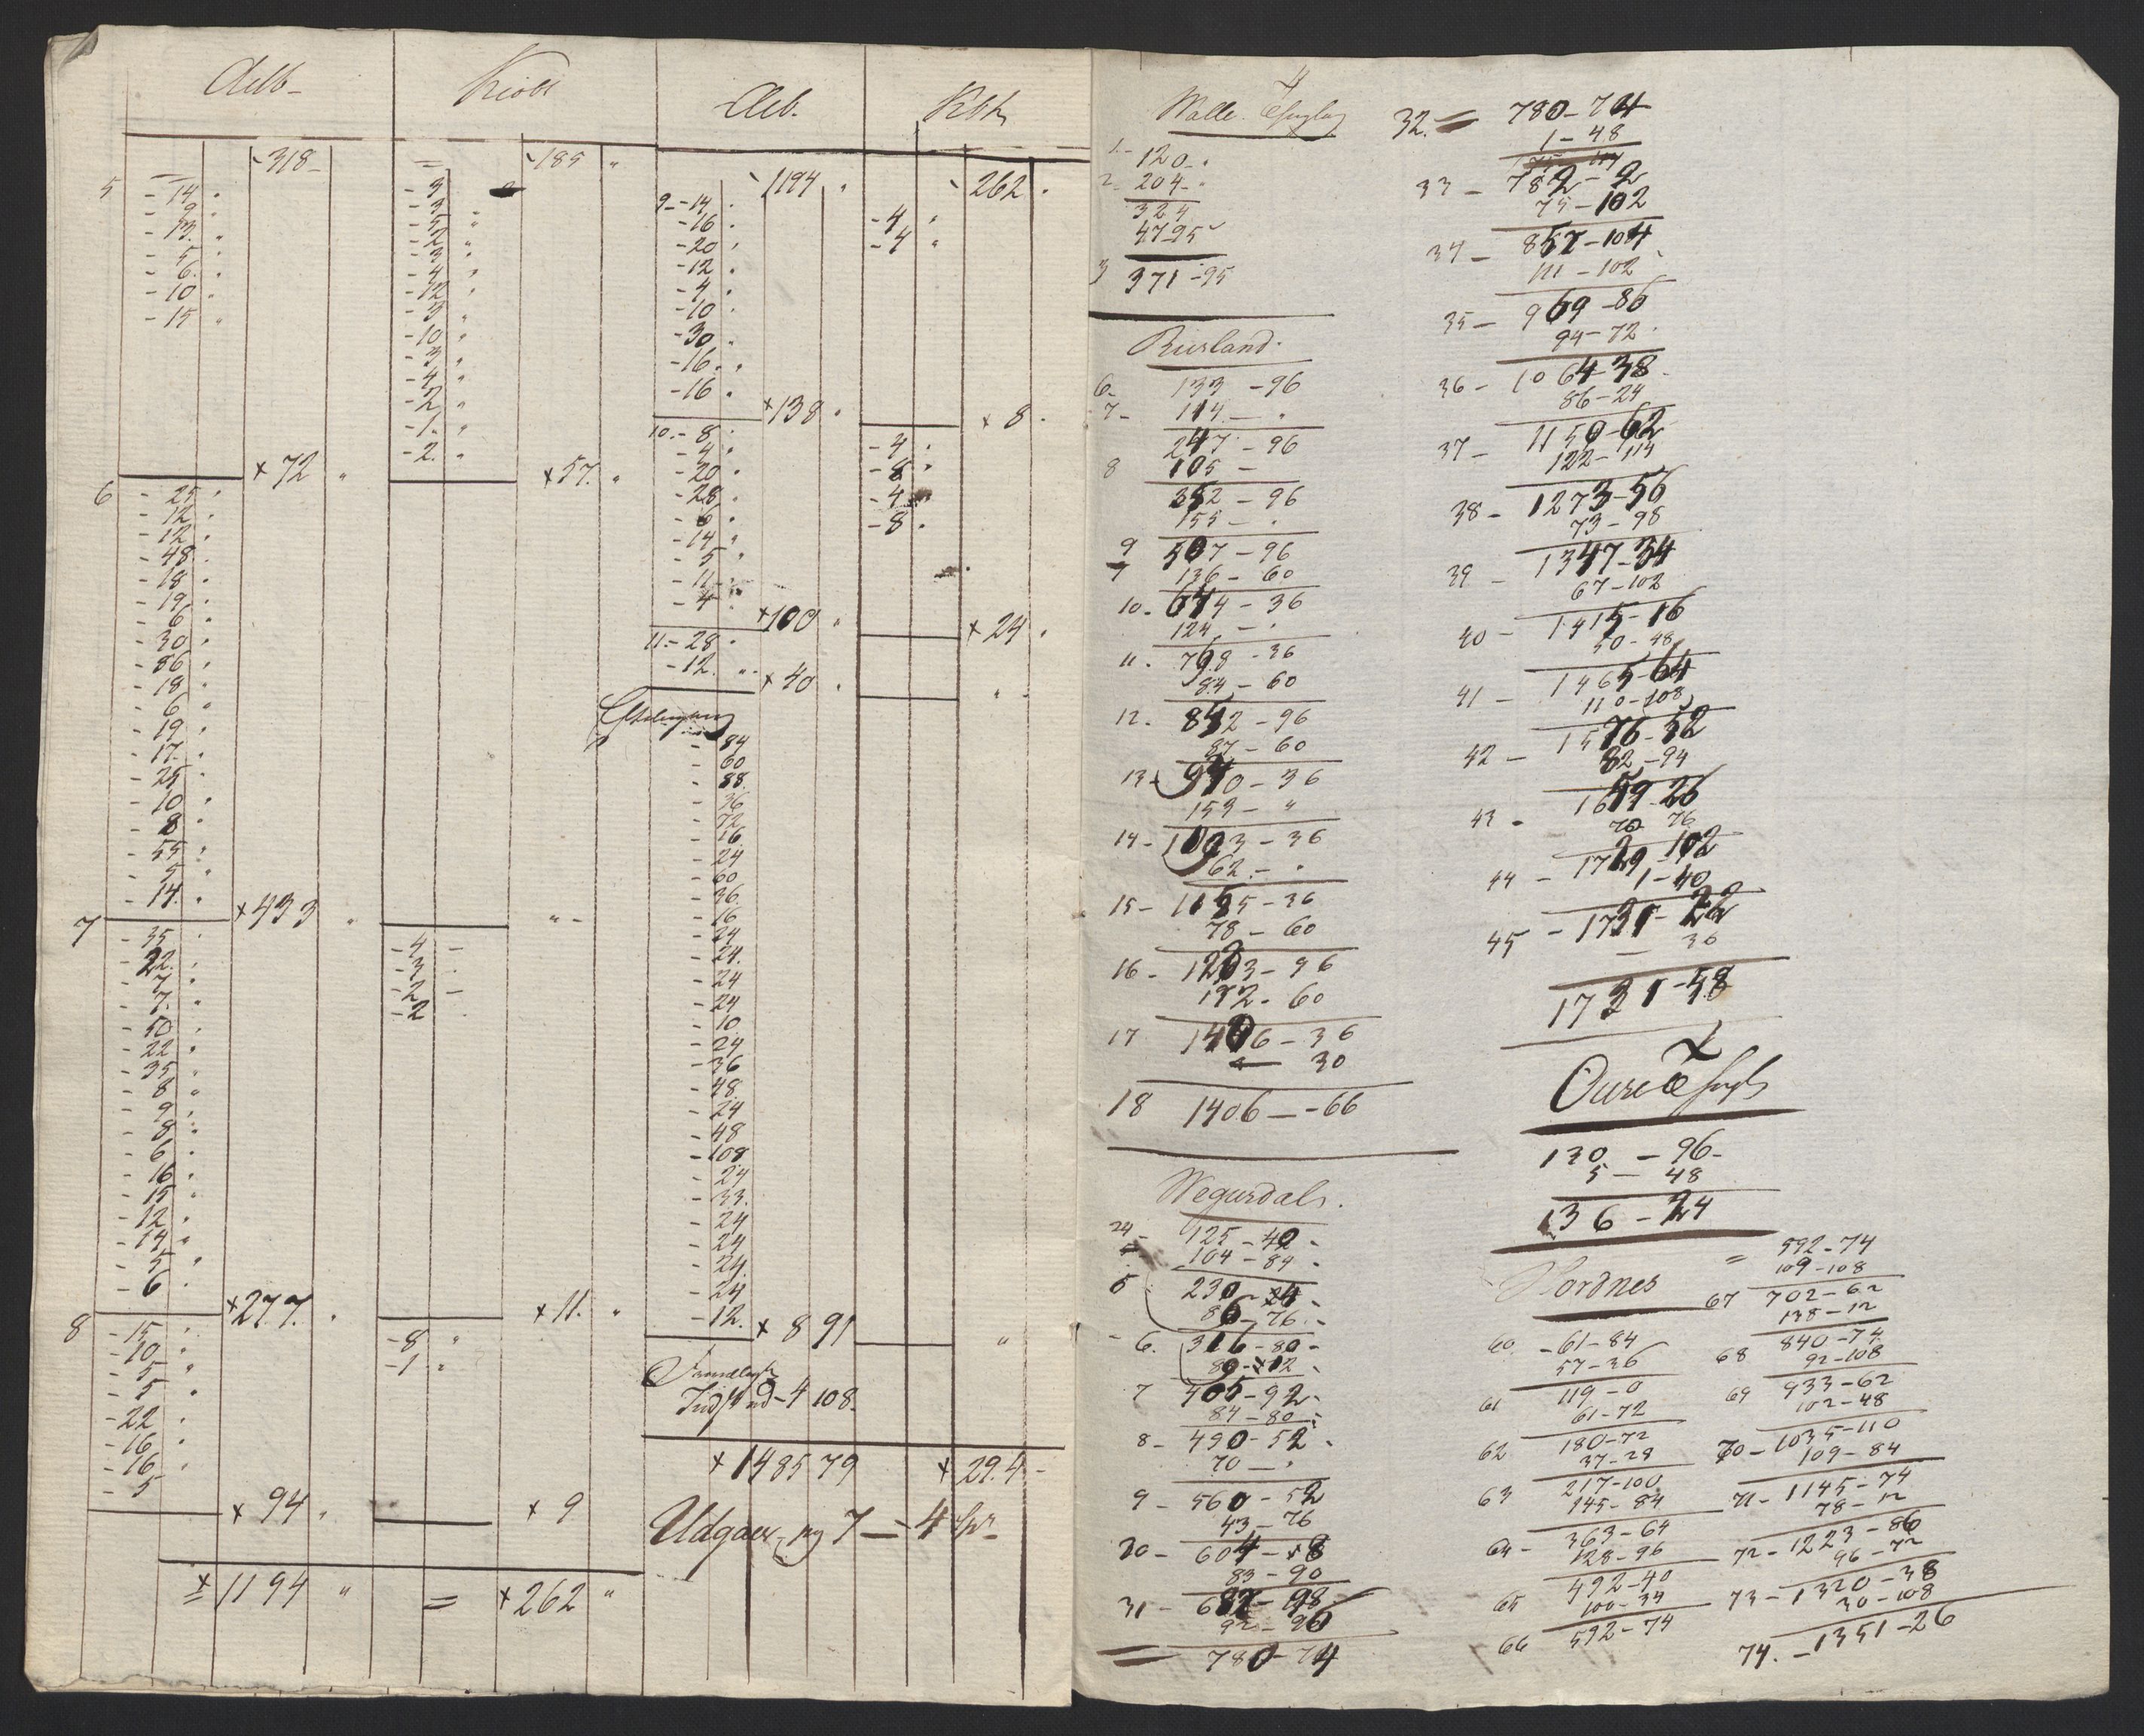 Aelb- Kiobl
- 318 - - 185 "
5 - 14 "
- 9 "
- 13 "
- 5 "
- 6 "
- 10 "
- 15 "
- 3
- 3 "
- 5 "
- 2 "
- 3 "
- 4 "
- 12 "
- 3 "
- 10 "
- 3 "
- 4 "
- 2 "
- 1 "
- 2. "
x 72 " x 57. "
6 - 25 "
- 12 "
- 12 "
- 48 "
- 18 "
- 19 "
- 6 "
- 30 "
- 86 "
- 18 "
- 6 "
- 19 "
- 17. "
- 25 "
- 10 "
- 8 "
- 55 "
- 5 "
- 14. "
x 433 " " -
7 - 35 "
- 22. "
- 7 "
- 7. "
- 50 "
- 22 "
- 35 "
- 8 "
- 9 "
- 8 "
- 6 "
- 16 "
- 15 "
- 12 "
- 14 "
- 5 "
- 6 "
- 4 -
- 3 -
- 2 -
- 2 -
x 277. " x 11. "
8 - 15 "
- 10 "
- 5 "
- 5 "
- 22 "
- 16 "
- 16 "
- 5 "
- 8 "
- 1 "
x 94 " x 9
x 1194 " = x 262 "
Aeb. Kbh
- 1194 " - 262 "
9 - 14 "
- 16 "
- 20 "
- 12 "
- 4 "
- 10 "
- 30 "
- 16 "
- 16 "
- 4 "
- 4 "
x 138 " x 8 -
10. - 8 "
- 4 "
- 20 "
- 28 "
- 6 "
- 14 "
- 5 "
- 11 "
- 4 "
- 4 "
- 8 "
- 4 "
- 8 "
x 100 " x 24 "
11 - 28 "
- 12. "
x 40 " " -
- 84
- 60
- 88.
- 36
- 72
- 16
- 24
- 60
- 36.
- 16
- 24
- 24.
- 24
- 24
- 10
- 24
- 36
- 48
- 24
- 48
- 108
- 24
- 33.
- 24
- 24
- 24.
- 24
- 12.
x 8 91 "
- 4 108.
x 1485 79 x 294 -
Udgaar pag 7 - 4
Walle
1 - 120 - "
2 - 204 - "
324
47-95
3 371 - 95
Rusland.
6 - 133 - 96
7 - 114 - "
247 - 96
8 105 -
352 - 96
155 - "
9 507 - 96
136 - 60
10 - 644 - 36
124 - "
11. 768 - 36
84 - 60
12. 852 - 96
87 - 60
13 - 940 - 36
153 - "
14 - 1093 - 36
62 - "
15 - 1155 - 36
78 - 60
16 - 1233 - 96
172 - 60
17 1406 - 36
- 30
18 1406 - 66
Wegusdal.
24 - 125 - 40 -
104 - 84 -
5 230 - 4 -
86 - 76 -
6. 316 - 80 -
89 - 12 -
7 405 - 92 -
84 - 80 -
8 - 490 - 52 -
70 - "
9 - 560 - 52
43 - 76
30 - 604 - 8
83 - 90
31 - 687 - 98
92 - 96
780 - 74
32. = 780 - 74
1 - 48
33 - 782 - 2
75 - 102
34 - 857 - 104
111 - 102
35 - 969 - 86
94 - 72
36 - 1064 - 38
86 - 24
37 - 1150 - 62
122 - 114
38 - 1273 - 56
73 - 98
39 - 1347 - 34
67 - 102
40 - 1415 - 16
50 - 48
41 - 1465 - 64
110 - 108
42 - 1576 - 52
82 - 94
43 - 1659 - 26
70 76
44 - 1729 - 102
1 - 40
45 - 1731 - 22
- 36
1731 - 58
130 - 96 -
5 - 48
136 - 24
Hordnes
60 - 61 - 84
57 - 36
61 119 - 0
61 - 72
62 180 - 72
37 - 28
63 217 - 100
145 - 84
64 - 363 - 64
128 - 96
65 492 - 40
100 - 34
66 592 - 74
= 592 - 74
109 - 108
67 702 - 62
138 - 12
68 840 - 74
92 - 108
69 933 - 62
102 - 48
70 - 1035 - 110
109 - 84
71 - 1145 - 74
78 - 12
72 - 1223 - 86
96 - 72
73 - 1320 - 38
30 - 108
74. - 1351 - 26